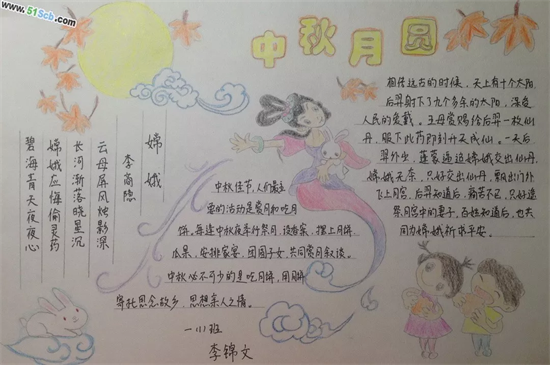 www.51Scb.com
中秋月圆
嫦娥
李商隐
云母屏风烛影深
长河渐落晓星沉
嫦娥应悔偷灵药
碧海青天夜夜心
相传远古的时候,天上有十个太阳
后羿射下了九个多余的太阳,深底
人民的爱戴。王母赏赐给后羿一枚仙
丹,服下此药即刻升天成仙。一天后
羿外出,蓬蒙逼迫嫦娥交出仙丹,
嫦娥无奈,只好交出仙丹,飘出门外
飞上月宫。后羿知道后,痛苦不已,只好遥
祭月宫中的妻子。百姓知道后,也共
同为嫦娥祈求平安。
中秋佳节,人们最主
要的活动是赏月和吃月
饼。每逢中秋夜举行祭月,设香案,摆上月饼
瓜果,安排家宴,团圆子女,共同赏月叙谈。
中秋必不可少的是吃月饼,用月饼
寄托思念故乡,思想亲人之情。
一(1)班
李锦文